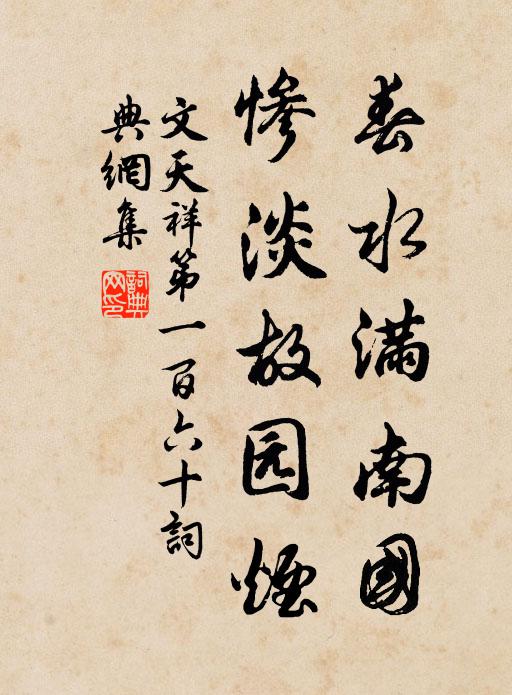 春水滿南國
惨淡故园煙
文天祥第一百六十詞
典網集
詞典网印